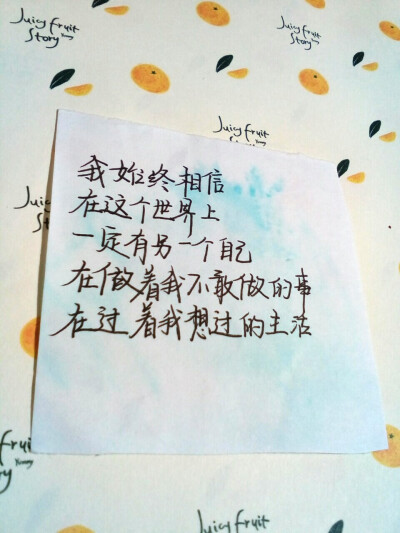 Juicy fruit
Story
Juicy fruit
Story
Juicy fruit
我始终相信
在这个世界上
一定有另一个自己
在做着我不敢做的事
在过着我想过的生活
Juicy fruit